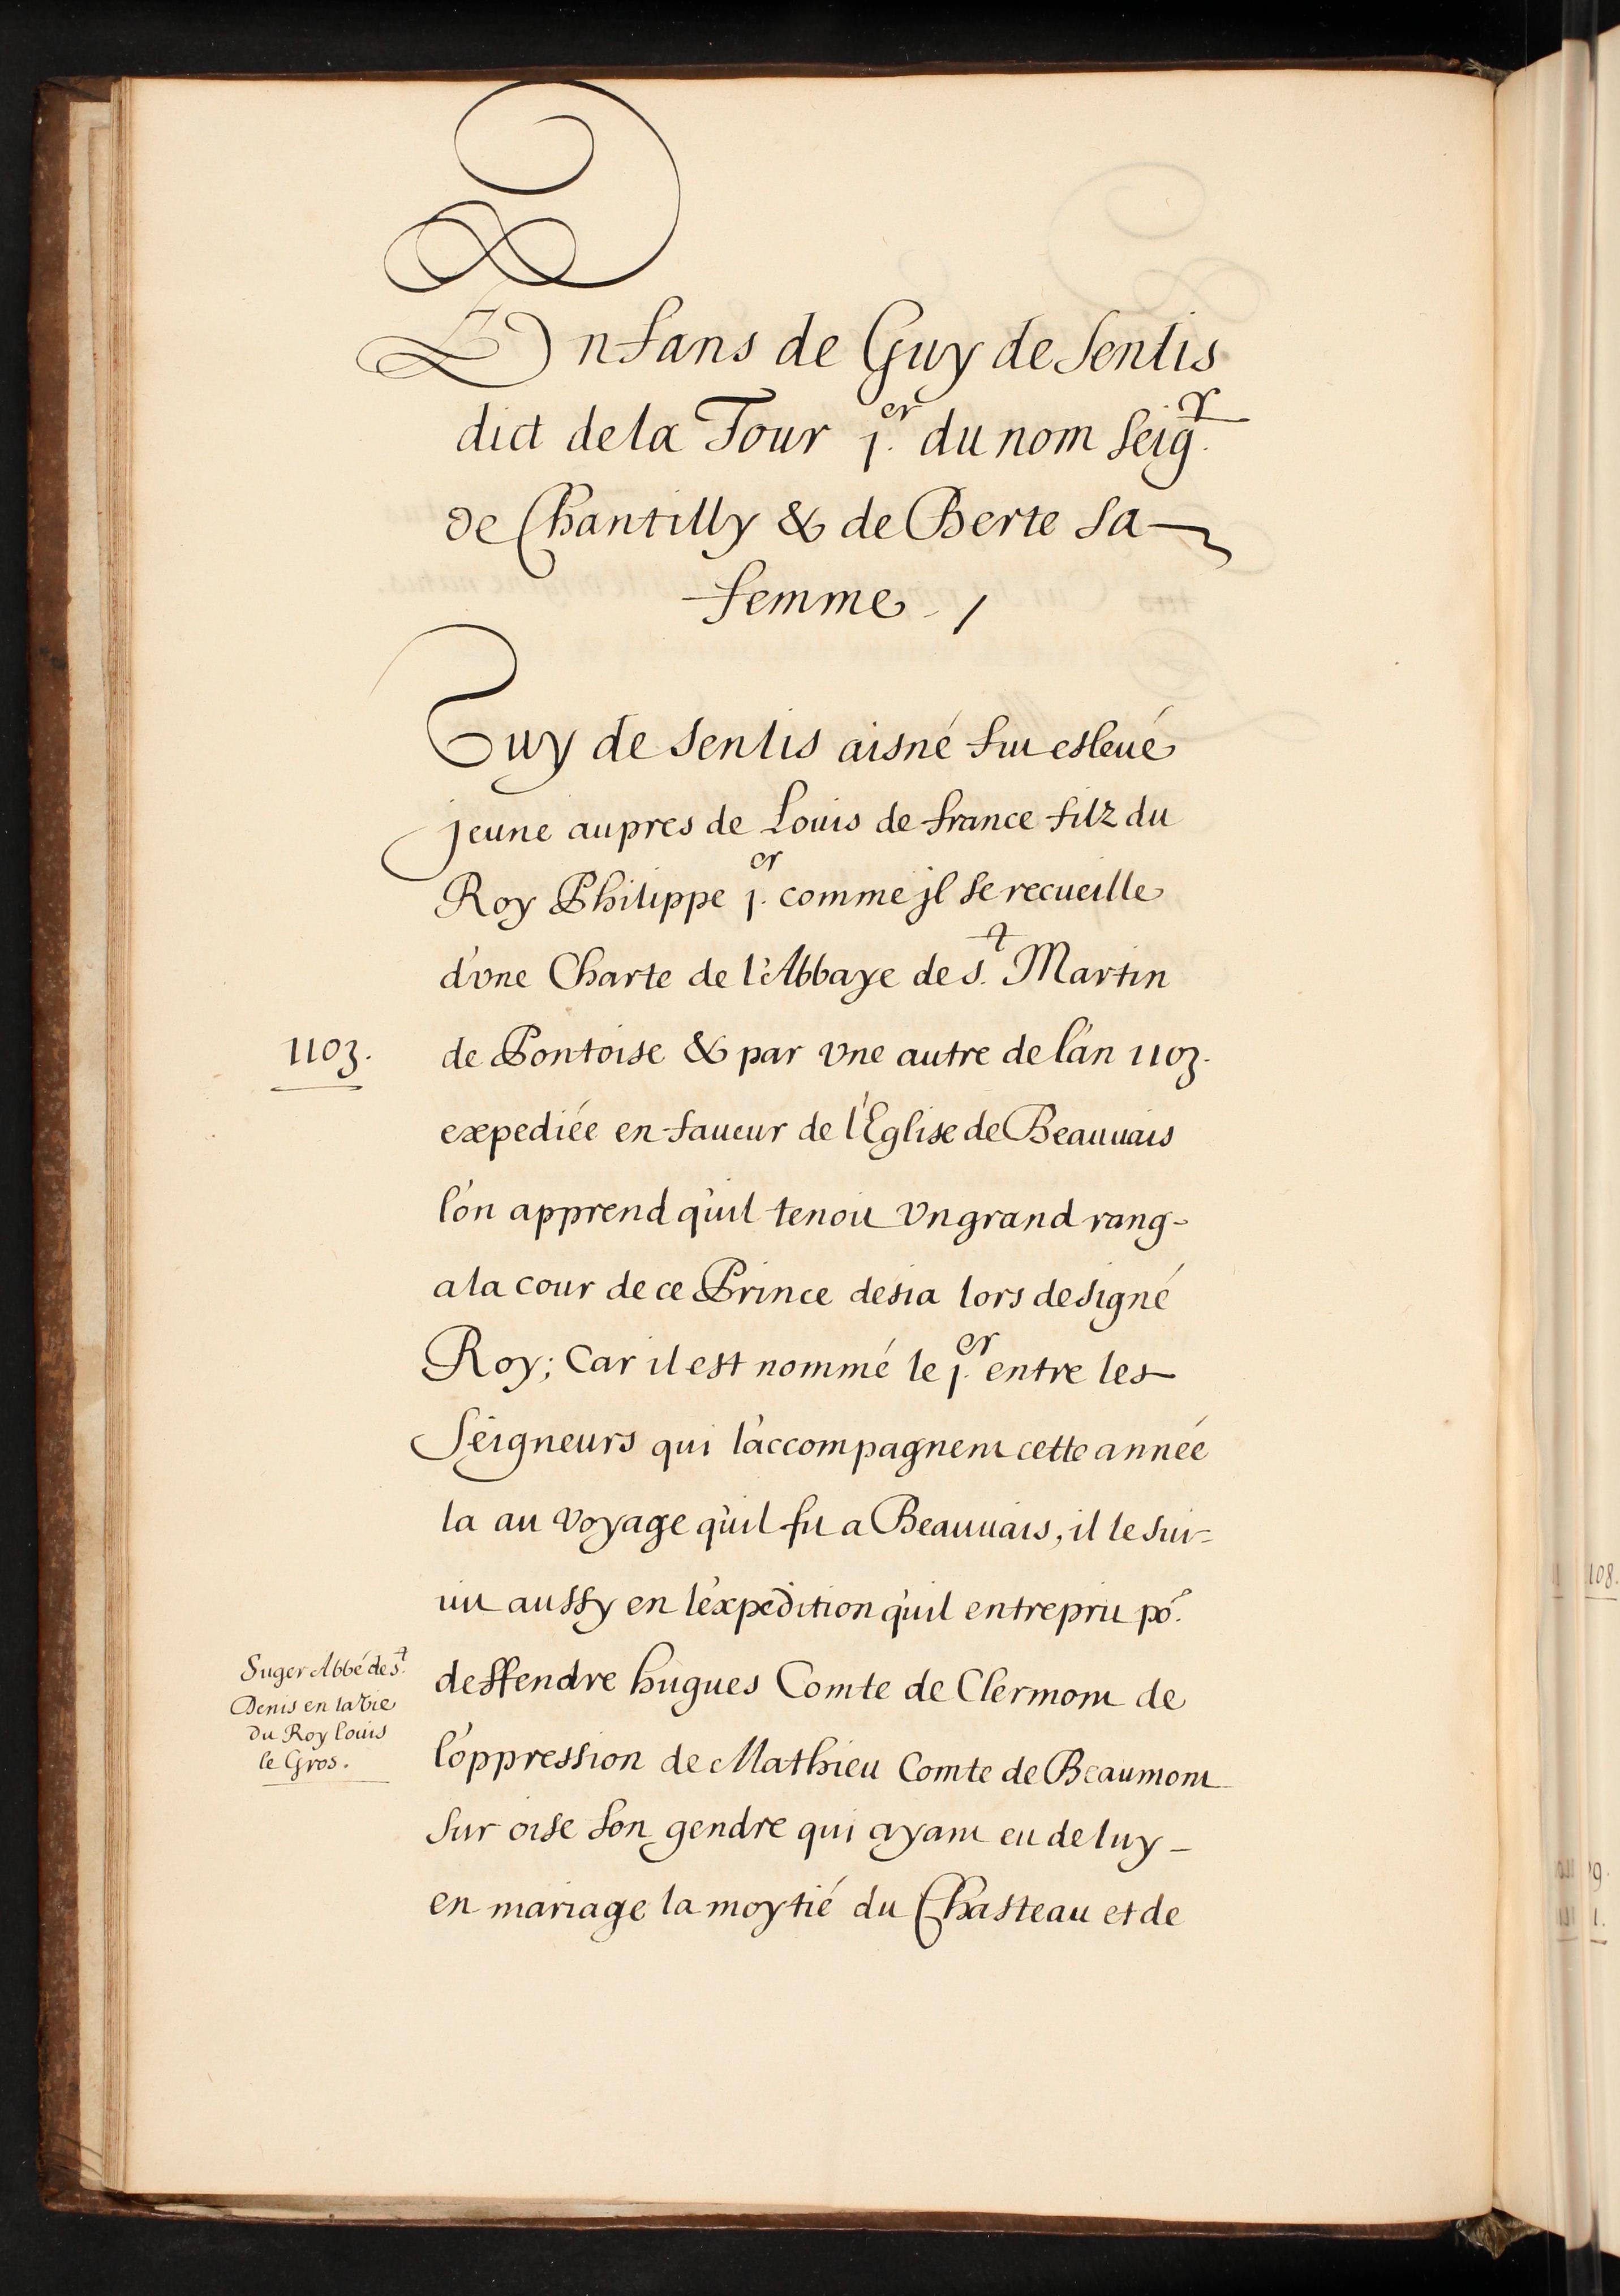 Enfans de Guy de Senlis
dict de la Tour j.er du nom Seig.r
de Chantilly & de Berte sa
femme /
Guy de Senlis aisné fut esleué
jeune aupres de Louis de france filz du
Roy Philippe j.er comme jl se recueille
d'vne Charte de l'Abbaye de S.t Martin
1103.
de Pontoise & par vne autre de l'an 1103.
expediée en faueur de l'Eglise de Beauuais
l'on apprend qu'il tenoit vn grand rang
a la cour de ce Prince desia lors designé
Roy; Car il est nommé le j.er entre les
Seigneurs qui l'accompagnent cette année
la au voyage qu'il fit a Beauuais, il le sui-
uit aussy en l'expedition qu'il entreprit po.r
Suger Abbé de S.t
Denis en la vie
du Roy Louis
le Gros.
deffendre hugues Comte de Clermont de
l'oppression de Mathieu Comte de Beaumont
sur oise son gendre qui ayant eu de luy
en mariage la moytié du Chasteau et de
108.
9.
1.